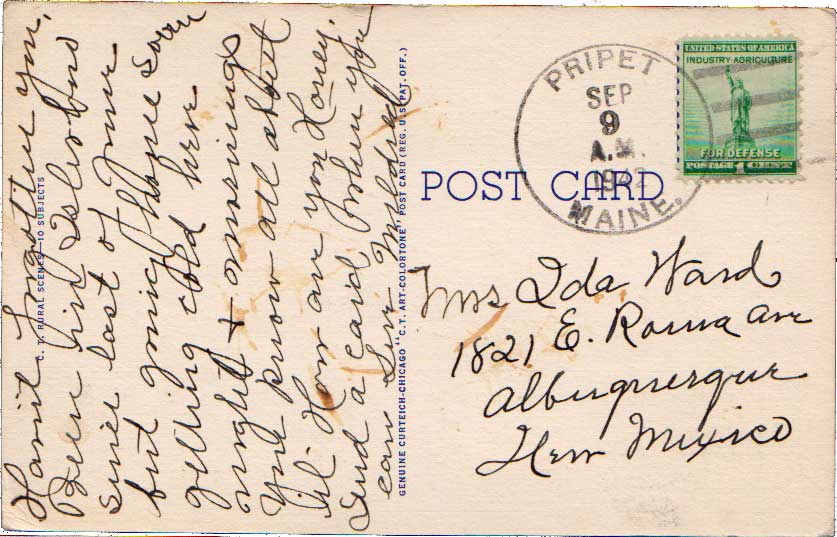 Hav'nt forgotten you,
Been in Islesboro
since last of June
but going home soon
getting cold here
nights + mornings
You know all about
it. How are you Honey.
Send a card when you
can Love Mildred
C. T. RURAL SCENES—10 SUBJECTS
GENUINE CURTEICH-CHICAGO "C. T. ART-COLORTONE" POST CARD (REG. U. S. PAT. OFF.)
POST CARD
PRIPET
SEP
9
A.M.
1942
MAINE.
UNITED STATES OF AMERICA
INDUSTRY AGRICULTURE
FOR DEFENSE
POSTAGE 1 CENT
Mrs Ida Ward
1821 E. Roma ave
Albuquerque
New Mexico